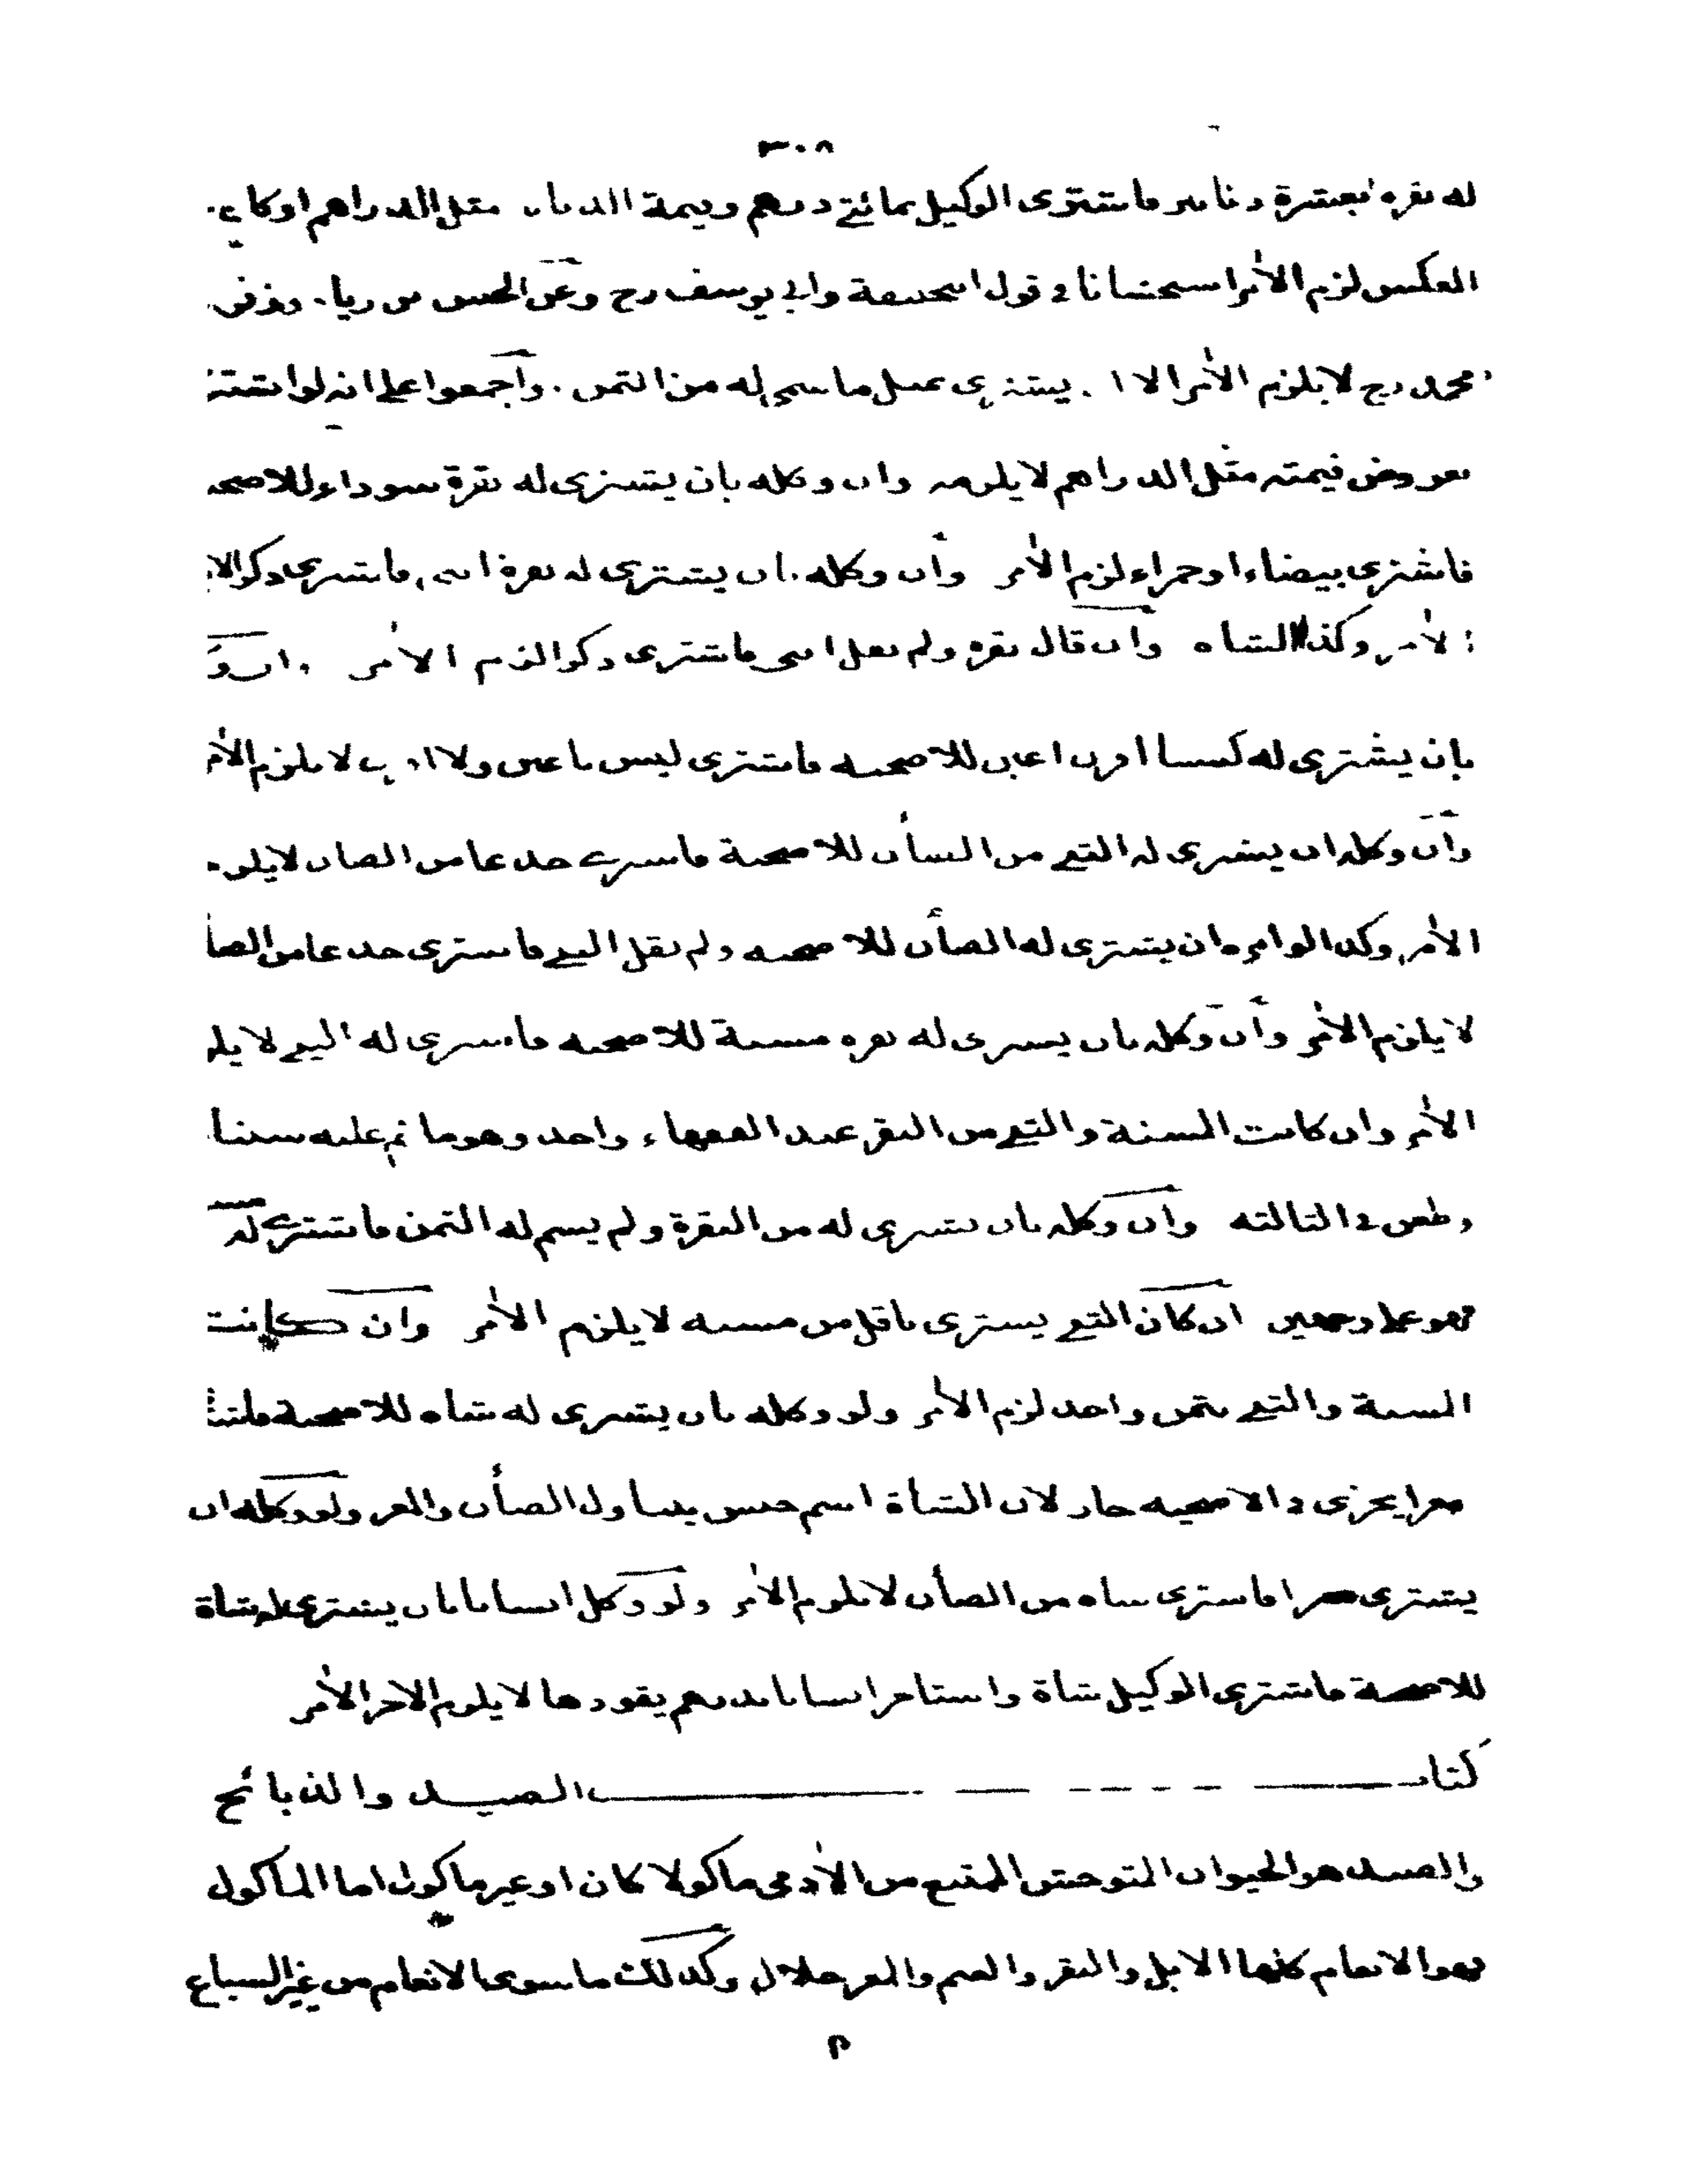 ٣٠٨
له بقرة بعشرة دنانير فاشترى الوكيل بمائتي درهم وقيمة الدنانير مثل الدراهم او كان
العكس لزم الآمر استحسانا في قول ابي حنيفة وابي يوسف رح وعن الحسن بن زياد وزفر
محمد رح لا يلزم الآمر الا ان يشتري بمثل ما سمى له من الثمن . واجمعوا على انه لو اشترى
بعروض قيمته مثل الدراهم لا يلزمه وان وكله بان يشتري له بقرة سوداء للاضحية
فاشترى بيضاء او حمراء لزم الآمر وان وكله بان يشتري له بقرة انثى فاشترى ذكرا لا
الآمر وكذا الشاة وان قال بقرة ولم يقل انثى فاشترى ذكرا لزم الآمر وان و
بان يشتري له كبشا اقرن اعين للاضحية فاشترى ليس باعين ولا اقرن لا يلزم الآمر
وان وكله ان يشتري له الثني من الضأن للاضحية فاشترى جذعا من الضأن لا يلزم
الآمر وكذا لو امره بان يشتري له الضأن للاضحية ولم يقل الثني فاشترى جذعا من الضأ
لا يلزم الآمر وان وكله بان يشتري له بقرة مسنة للاضحية فاشترى له الثني لا يلز
الآمر وان كانت المسنة والثني من البقر عند الفقهاء واحد وهو ما تم عليه سنتا
وطعن في الثالثة وان وكله بان يشتري له من البقرة ولم يسم له الثمن فاشترى له
فهو على وجهين ان كان الثني يشترى باقل من مسنة لا يلزم الآمر وان كانت
المسنة والثني بثمن واحد لزم الآمر ولو وكله بان يشتري له شاة للاضحية فاشتر
معزا يجزى في الاضحية جاز لان الشاة اسم جنس يتناول الضأن والمعز ولو وكله ان
يشتري معزا فاشترى شاة من الضأن لا يلزم الآمر ولو وكل انسانا بان يشتري له شاة
للاضحية فاشترى الوكيل شاة واستأجر انسانا بدرهم يقودها لا يلزم الاجر الآمر
كتاب الصيد والذبائح
والصيد هو الحيوان المتوحش الممتنع من الآدمي مأكولا كان او غير مأكول اما المأكول
فهو الانعام كلها الابل والبقر والغنم والمعز حلال وكذلك ما سوى الانعام من غير السباع
م